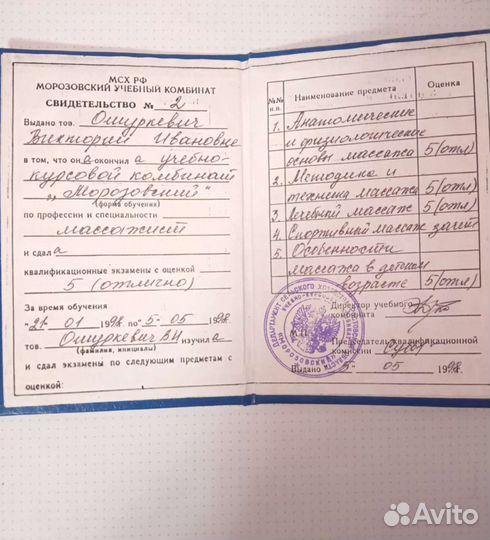 МСХ РФ
МОРОЗОВСКИЙ УЧЕБНЫЙ КОМБИНАТ
СВИДЕТЕЛЬСТВО № 2
Выдано тов. Ошуркевич
Виктории Ивановне
в том, что он а окончил а учебно-
курсовой комбинат
„Морозовский"
(форма обучения)
по профессии и специальности
массажист
и сдал а
квалификационные экзамены с оценкой
5 (отлично)
За время обучения
"21" 01 1998 по "5" 05 1998
тов. Ошуркевич ВИ изучил а
(фамилия, инициалы)
и сдал экзамены по следующим предметам с
оценкой:
№№ п.п. Наименование предмета Оценка
1. Анатомические
и физиологические
основы массажа 5 (отл)
2. Методика и
техника массажа 5 (отл)
3. Лечебный массаж 5 (отл)
4. Спортивный массаж зачёт
5. Особенности
массажа в детском
возрасте 5 (отл)
Директор учебного
комбината
Председатель квалификационной
комиссии
Выдано 5- 05 1998
Avito